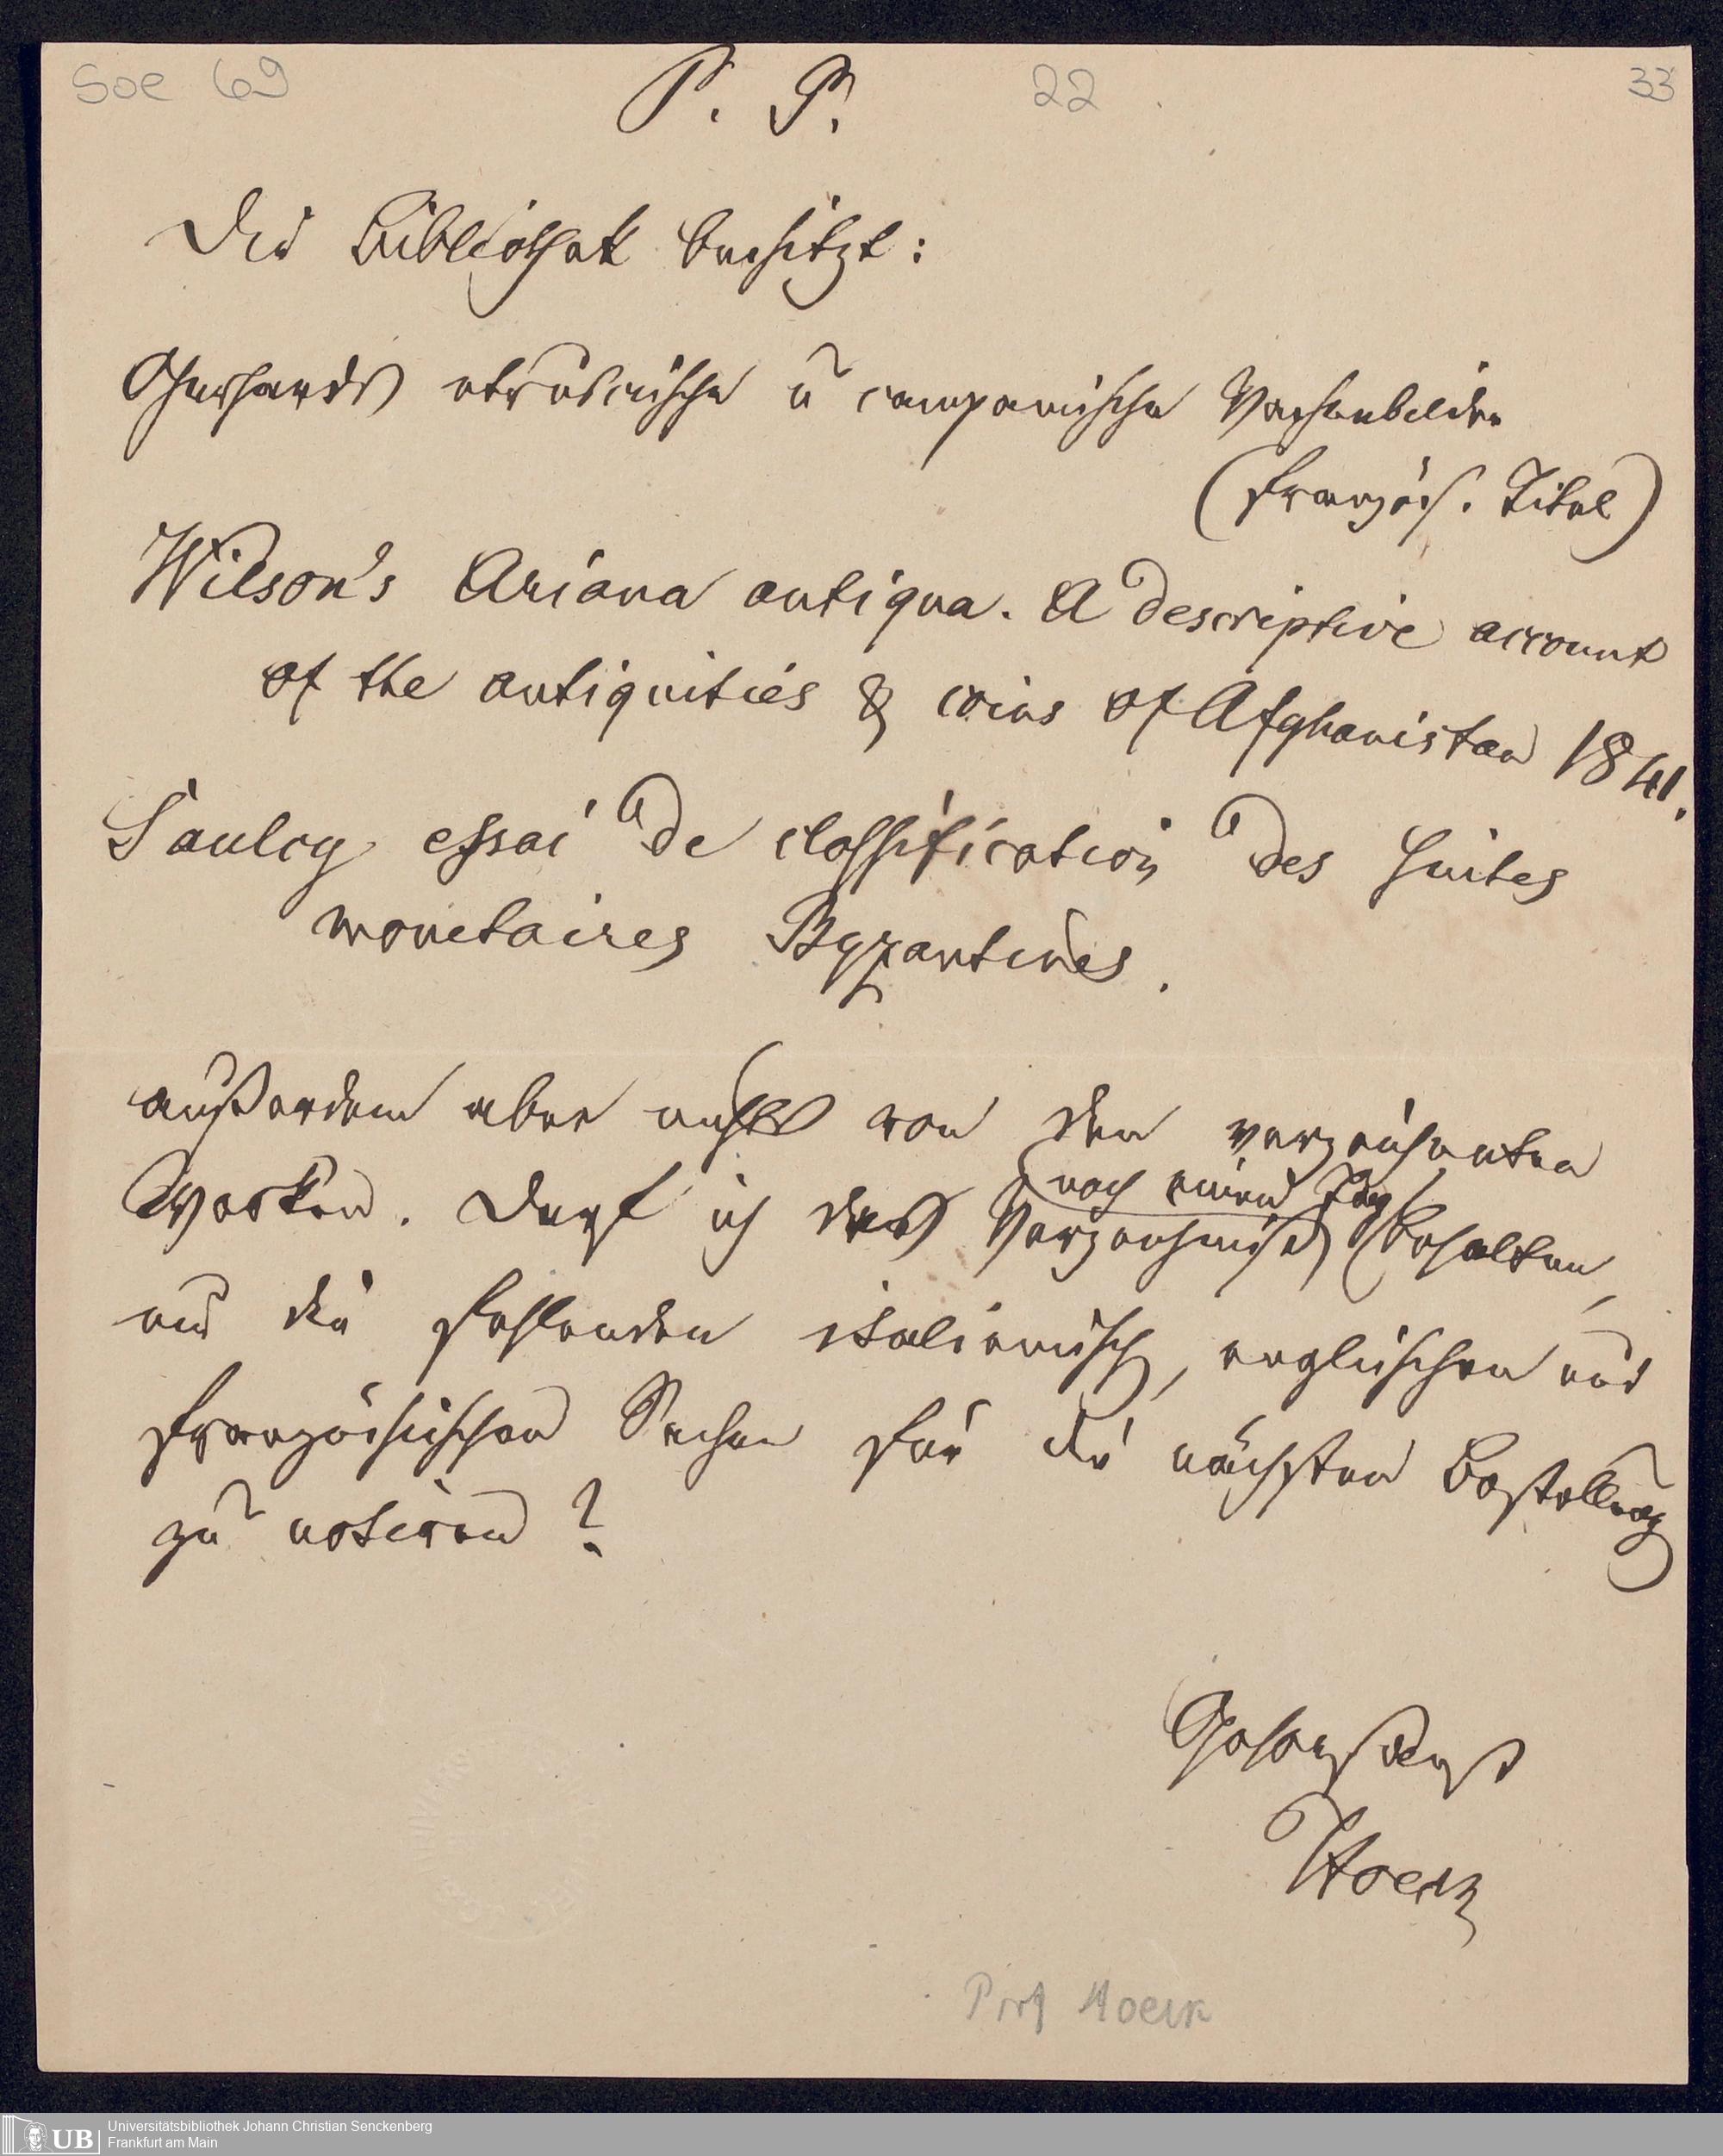 Soe 69
P. P.
22
33
Die Bibliothek besitzt:
Gerhards etruskische u campanische Vasenbilder
(französ. Titel)
Wilson's Ariana antiqua. A descriptive account
of the antiquities & coins of Afghanistan 1841.
Saulcy essai de classification des suites
monetaires Byzantines.
außerdem aber nichts von den verzeichneten
Werken. Darf ich das Verzeichniß noch einen Tag behalten,
um die fehlenden italienisch, englischen und
französischen Sachen für die nächsten Bestellung
zu notiren?
Gehorsamst
Hoeck
Prof Hoeck
UB
Universitätsbibliothek Johann Christian Senckenberg
Frankfurt am Main